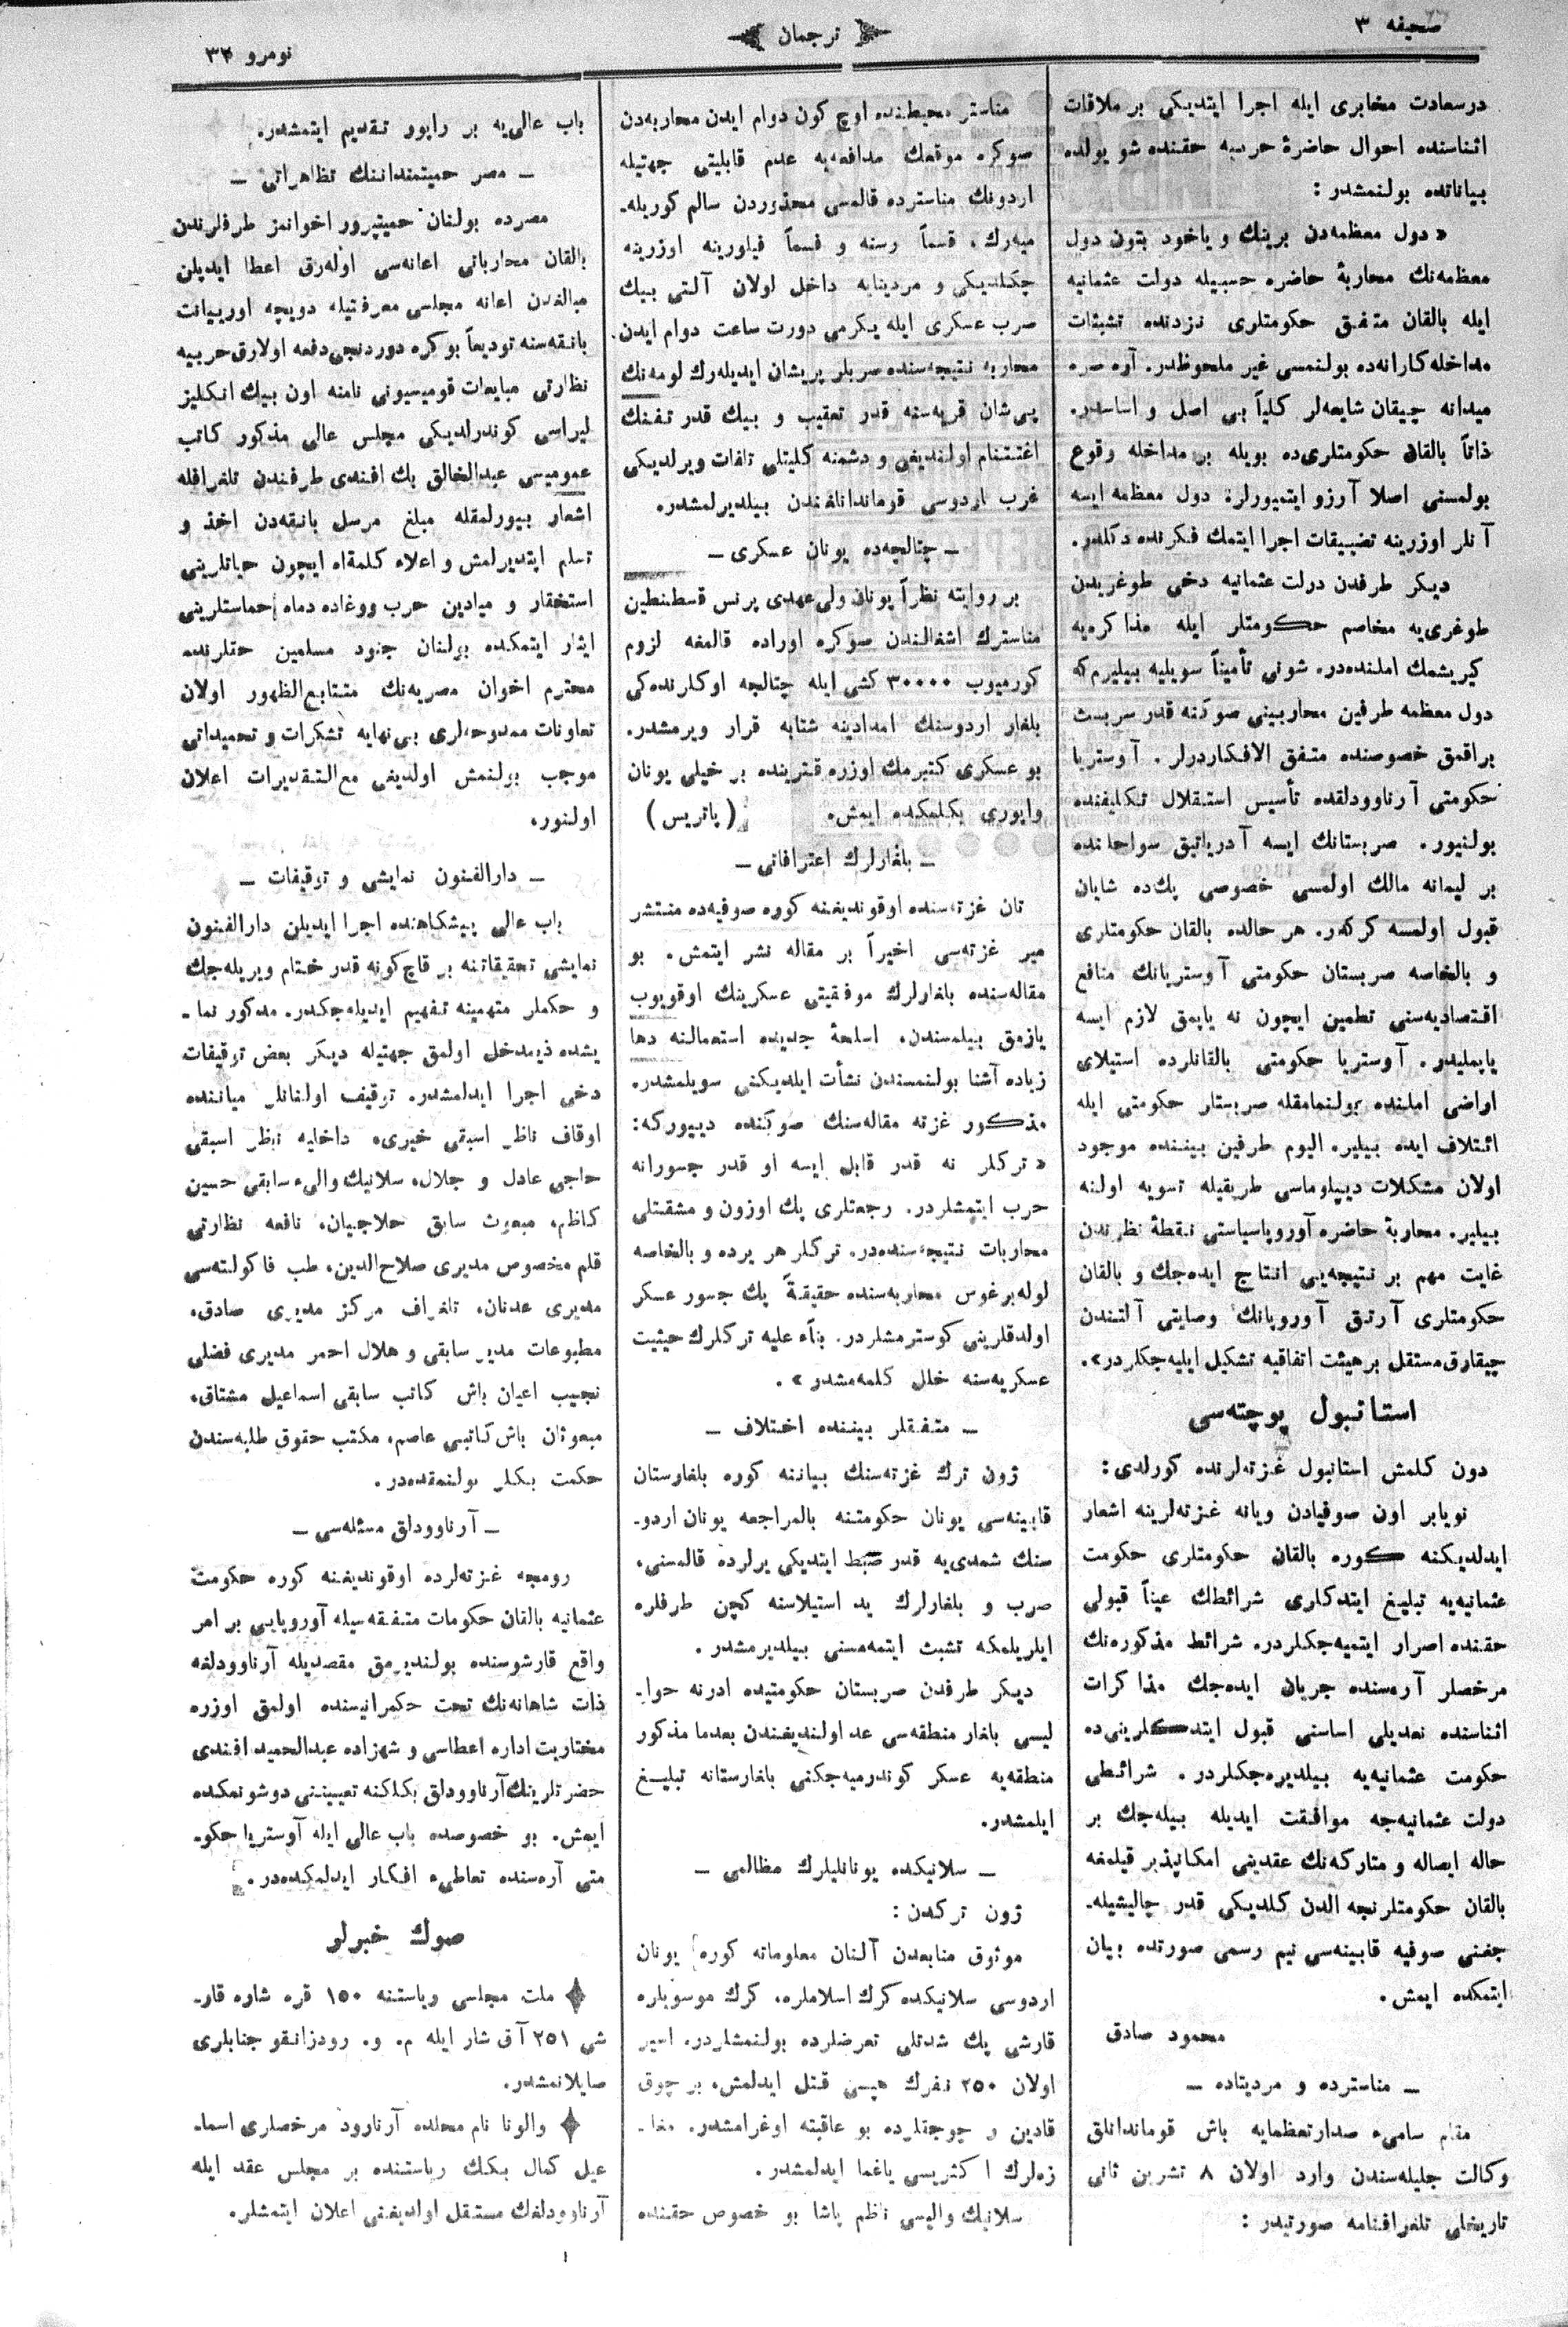 صحیفه ۳
ترجمان
نومرو ۳۴
درسعادت مخابری ایله اجرا ایتدیکی بر ملاقات
اثناسنده احوال حاضرهٔ حربیه حقنده شو یولده
بیاناتده بولنمشدر :
« دول معظمه‌دن برینك و یاخود بتون دول
معظمه‌نك محاربهٔ حاضره حسبیله دولت عثمانیه
ایله بالقان متفق حکومتلری نزدنده تشبثات
مداخله‌کارانه‌ده بولنمسی غیر ملحوظدر. آره صره
میدانه چیقان شایعه‌لر کلیاً بی اصل و اساسدر.
ذاتاً بالقان حکومتلری‌ده بویله بر مداخله وقوع
بولمسنی اصلا آرزو ایتمیورلر؛ دول معظمه ایسه
آنلر اوزرینه تضییقات اجرا ایتمك فکرنده دکلدر.
دیکر طرفدن دولت عثمانیه دخی طوغریدن
طوغری‌یه مخاصم حکومتلر ایله مذاکره‌یه
کیریشمك املنده‌در. شونی تأمیناً سویلیه بیلیرم که
دول معظمه طرفین محاربینی صوکنه قدر سربست
براقمق خصوصنده متفق الافکاردرلر . آوستریا
حکومتی آرناوودلقده تأسیس استقلال تکلیفنده
بولنیور. صربستانك ایسه آدریاتیق سواحلنده
بر لیمانه مالك اولمسی خصوصی پك‌ده شایان
قبول اولمسه کرکدر. هر حالده بالقان حکومتلری
و بالخاصه صربستان حکومتی آوستریانك منافع
اقتصادیه‌سنی تطمین ایچون نه یاپمق لازم ایسه
یاپملیدر. آوستریا حکومتی بالقانلرده استیلای
اراضی املنده بولنمامقله صربستان حکومتی ایله
ائتلاف ایده بیلیر. الیوم طرفین بیننده موجود
اولان مشکلات دیپلوماسی طریقیله تسویه اولنه
بیلیر. محاربهٔ حاضره آوروپاسیاستی نقطهٔ نظرندن
غایت مهم بر نتیجه‌یی انتاج ایده‌جك و بالقان
حکومتلری آرتق آوروپانك وصایتی آلتندن
چیقارق مستقل بر هیئت اتفاقیه تشکیل ایلیه‌جکلردر».
استانبول پوچته‌سی
دون کلمش استانبول غزته‌لرنده کورلدی :
نویابر اون صوفیادن ویانه غزته‌لرینه اشعار
ایدلدیکنه کوره بالقان حکومتلری حکومت
عثمانیه‌یه تبلیغ ایتدکلری شرائطك عیناً قبولی
حقنده اصرار ایتمیه‌جکلردر. شرائط مذکوره‌نك
مرخصلر آره‌سنده جریان ایده‌جك مذاکرات
اثناسنده تعدیلی اساسنی قبول ایتدکلرینی‌ده
حکومت عثمانیه‌یه بیلدیره‌جکلردر. شرائطی
دولت عثمانیه‌جه موافقت ایدیله بیله‌جك بر
حاله ایصاله و متارکه‌نك عقدینی امکانپذیر قیلمغه
بالقان حکومتلرنجه الدن کلدیکی قدر چالیشیله-
جغنی صوفیه قابینه‌سی نیم رسمی صورتده بیان
ایتمکده ایمش.
محمود صادق
– مناسترده و مردیتاده –
مقام سامیء صدارتعظمایه باش قوماندانلق
وکالت جلیله‌سندن وارد اولان ۸ تشرین ثانی
تاریخلی تلغرافنامه صورتیدر :
مناستر محیطنده اوچ کون دوام ایدن محاربه‌دن
صوکره موقعك مدافعه‌یه عدم قابلیتی جهتیله
اردونك مناسترده قالمسی محذوردن سالم کوریله-
میه‌رك، قسماً رسنه و قسماً فیلورینه اوزرینه
چکلدیکی و مردیتایه داخل اولان آلتی بیك
صرب عسکری ایله یکرمی دورت ساعت دوام ایدن
محاربه نتیجه‌سنده صربلر پریشان ایدیله‌رك لومه‌نك
پی‌شان قریه‌سنه قدر تعقیب و بیك قدر تفنك
اغتنام اولندیغی و دشمنه کلیتلی تلفات ویرلدیکی
غرب اردوسی قوماندانلغندن بیلدیرلمشدر.
– چتالجه‌ده یونان عسکری –
بر روایته نظراً یونان ولی‌عهدی پرنس قسطنطین
مناسترك اشغالندن صوکره اوراده قالمغه لزوم
کورمیوب ۳۰۰۰۰ کشی ایله چتالجه اوکلرنده‌کی
بلغار اردوسنك امدادینه شتابه قرار ویرمشدر.
بو عسکری کتیرمك اوزره قترینده بر خیلی یونان
واپوری بکلمکده ایمش. (پاتریس)
– بلغارلرك اعترافاتی –
تان غزته‌سنده اوقوندیغنه کوره صوفیه‌ده منتشر
میر غزته‌سی اخیراً بر مقاله نشر ایتمش. بو
مقاله‌سنده بلغارلرك موفقیتی عسکرینك اوقویوب
یازمق بیلمسندن، اسلحهٔ جدیده استعمالنه دها
زیاده آشنا بولنمسندن نشأت ایلدیکنی سویلمشدر.
مذکور غزته مقاله‌سنك صوکنده دییورکه:
« ترکلر نه قدر قابل ایسه او قدر جسورانه
حرب ایتمشلردر. رجعتلری پك اوزون و مشقتلی
محاربات نتیجه‌سنده‌در. ترکلر هر یرده و بالخاصه
لوله‌برغوس محاربه‌سنده حقیقةً پك جسور عسکر
اولدقلرینی کوسترمشلردر. بناء علیه ترکلرك حیثیت
عسکریه‌سنه خلل کلمه‌مشدر ».
– متفقلر بیننده اختلاف –
ژون ترك غزته‌سنك بیاننه کوره بلغارستان
قابینه‌سی یونان حکومتنه بالمراجعه یونان اردو-
سنك شمدی‌یه قدر ضبط ایتدیکی یرلرده قالمسنی،
صرب و بلغارلرك ید استیلاسنه کچن طرفلره
ایلریلمکه تشبث ایتمه‌مسنی بیلدیرمشدر.
دیکر طرفدن صربستان حکومتیده ادرنه حوا-
لیسی بلغار منطقه‌سی عد اولندیغندن بعدما مذکور
منطقه‌یه عسکر کوندرمیه‌جکنی بلغارستانه تبلیغ
ایلمشدر.
– سلانیکده یونانلیلرك مظالمی –
ژون ترکدن :
موثوق منابعدن آلنان معلوماته کوره یونان
اردوسی سلانیکده کرك اسلاملره، کرك موسویلره
قارشی پك شدتلی تعرضلرده بولنمشلردر. اسیر
اولان ۲۵۰ نفرك هپسی قتل ایدلمش، بر چوق
قادین و چوجقلرده بو عاقبته اوغرامشدر. مغا-
زه‌لرك اکثریسی یاغما ایدلمشدر.
سلانیك والیسی ناظم پاشا بو خصوص حقنده
باب عالی‌یه بر راپور تقدیم ایتمشدر.
– مصر حمیتمنداننك تظاهراتی –
مصرده بولنان حمیتپرور اخوانمز طرفلرندن
بالقان محارباتی اعانه‌سی اوله‌رق اعطا ایدیلن
مبالغدن اعانه مجلسی معرفتیله دویچه اوریانت
بانقه‌سنه تودیعاً بو کره دوردنجی دفعه اولارق حربیه
نظارتی مبایعات قومیسیونی نامنه اون بیك انکلیز
لیراسی کوندرلدیکی مجلس عالی مذکور کاتب
عمومیسی عبدالخالق بك افندی طرفندن تلغرافله
اشعار بیورلمقله مبلغ مرسل بانقه‌دن اخذ و
تسلم ایتدیرلمش و اعلاء کلمةالله ایچون حیاتلرینی
استحقار و میادین حرب ووغاده دماء حماستلرینی
ایثار ایتمکده بولنان جنود مسلمین حقلرنده
محترم اخوان مصریه‌نك متتابع‌الظهور اولان
تعاونات ممدوحه‌لری بی‌نهایه تشکرات و تحمیداتی
موجب بولنمش اولدیغی مع‌التقدیرات اعلان
اولنور.
– دارالفنون نمایشی و توقیفات –
باب عالی پیشکاهنده اجرا ایدیلن دارالفنون
نمایشی تحقیقاتنه بر قاچ کونه قدر ختام ویریله‌جك
و حکملر متهمینه تفهیم ایدیله‌جکدر. مذکور نما-
یشده ذیمدخل اولمق جهتیله دیکر بعض توقیفات
دخی اجرا ایدلمشدر. توقیف اولنانلر میاننده
اوقاف ناظر اسبقی خیری، داخلیه ناظر اسبقی
حاجی عادل و جلال، سلانیك والیء سابقی حسین
کاظم، مبعوث سابق حلاجیان، نافعه نظارتی
قلم مخصوص مدیری صلاح‌الدین، طب فاکولته‌سی
مدیری عدنان، تلغراف مرکز مدیری صادق،
مطبوعات مدیر سابقی و هلال احمر مدیری فضلی
نجیب اعیان باش کاتب سابقی اسماعیل مشتاق،
مبعوثان باش کاتبی عاصم، مکتب حقوق طلبه‌سندن
حکمت بکلر بولنمقده‌در.
– آرناوودلق مسئله‌سی –
رومجه غزته‌لرده اوقوندیغنه کوره حکومت
عثمانیه بالقان حکومات متفقه‌سیله آوروپایی بر امر
واقع قارشوسنده بولندیرمق مقصدیله آرناوودلغه
ذات شاهانه‌نك تحت حکمرانیسنده اولمق اوزره
مختاریت اداره اعطاسی و شهزاده عبدالحمید افندی
حضرتلرینك آرناوودلق بکلکنه تعییننی دوشونمکده
ایمش. بو خصوصده باب عالی ایله آوستریا حکو-
متی آره‌سنده تعاطیء افکار ایدلمکده‌در.
صوك خبرلر
ملت مجلسی ریاستنه ۱۵۰ قره شاره قار-
شی ۲۵۱ آق شار ایله م. و. رودزانقو جنابلری
صایلانمشدر.
والونا نام محلده آرناوود مرخصلری اسما-
عیل کمال بکك ریاستنده بر مجلس عقد ایله
آرناوودلغك مستقل اولدیغنی اعلان ایتمشلر.